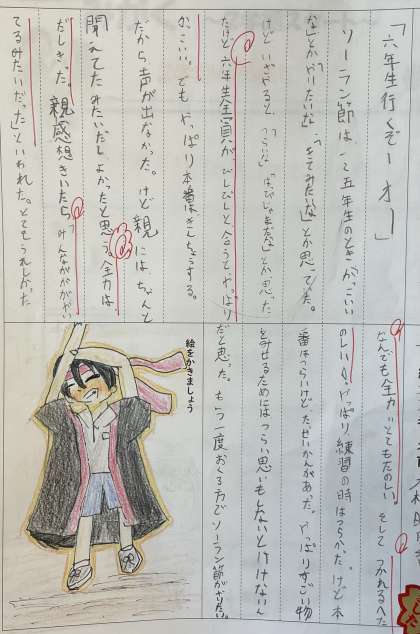 「六年生行くぞーオー」
ソーラン節は、五年生のときがっこいい
な」とか「やりたいな」「きてみたいな」とか思っていた。
けどいざきると「っこいな」「はだじゃまだな」とか思った
たけど六年生全員がびしびしと合うとやっぱり
かっこいい。でもやっぱり本番はきんちょうする。
だから声が出なかった。けど親にはちゃんと
聞れてたみたいだしよかったと思う。全力は
だしきった。親感想きいたら「みんながかがやい
てるみたいだった」といわれた。とてもうれしかった
なんでも全力だととてもたのしい。そしてつかれるへた
のしい。やっぱり練習の時はつらかった。けど本
番はつらいけど、たっせいかんがあった。やっぱりすごい物
をみせるためにはつらい思いもしないといけないん
だと思った。もう一度おくる方でソーラン節がやりたい。
絵をかきましょう